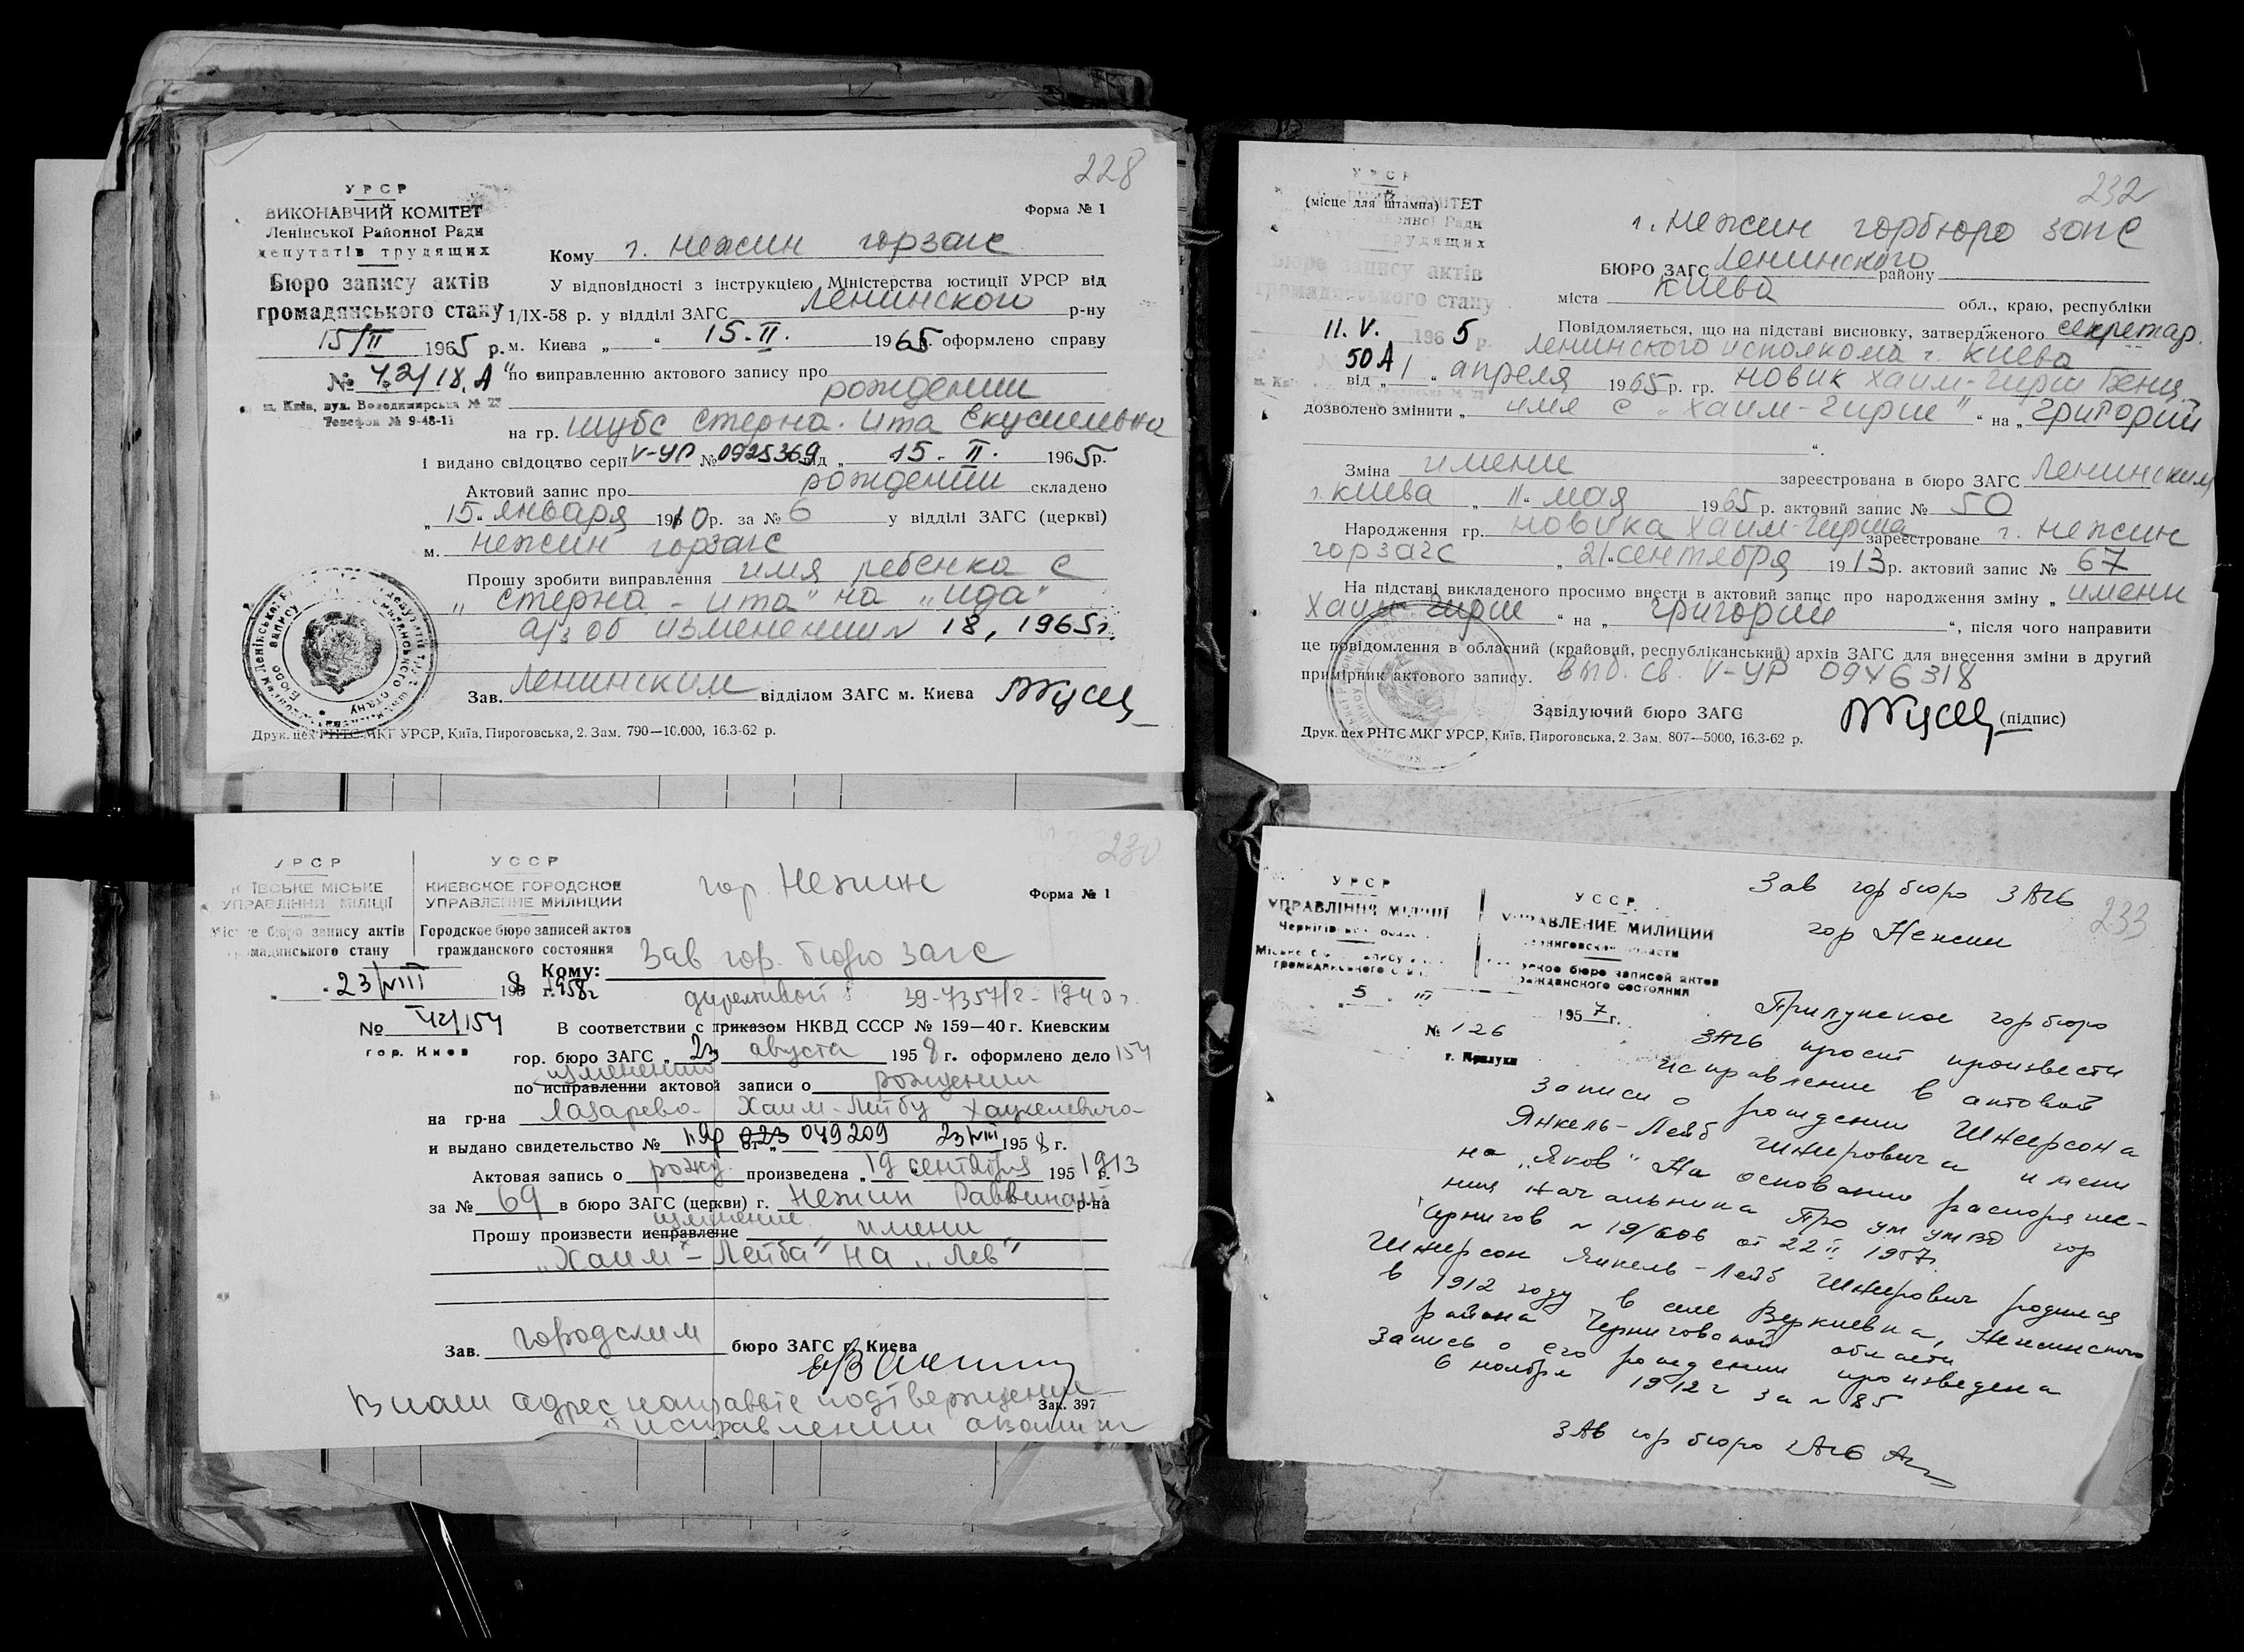 228
УРСР
ВИКОНАВЧИЙ КОМІТЕТ
Ленінської Районної Ради
депутатів трудящих
Бюро запису актів
громадянського стану
15/II 1965 р.
№ 42/18.А
м. Київ, вул. Володимирська №
Телефон № 9-48-11
Форма № 1
Кому г. Нежин горзагс
У відповідності з інструкцією Міністерства юстиції УРСР від
1/IX-58 р. у відділі ЗАГС Ленинского р-ну
м. Києва „ “ 15.II. 1965. оформлено справу
по виправленню актового запису про
рождении
на гр. Шубс Стерна. Ита
і видано свідоцтво серії V-УР № 0925369 від „ 15. II. 1965р.
Актовий запис про рождении складено
„15“ января 1910р. за № 6 у відділі ЗАГС (церкві)
м. Нежин горзагс
Прошу зробити виправлення имя ребенка с
„Стерна - Ита“ на „Ида“
а/з об изменении № 18, 1965г.
Зав. Ленинским відділом ЗАГС м. Києва
Друк. цех РНТЄ МКГ УРСР, Київ, Пироговська, 2. Зам. 790—10.000, 16.3-62 р.
230
УРСР
КИЇВСЬКЕ МІСЬКЕ
УПРАВЛІННЯ МІЛІЦІЇ
Міське бюро запису актів
громадянського стану
УССР
КИЕВСКОЕ ГОРОДСКОЕ
УПРАВЛЕНИЕ МИЛИЦИИ
Городское бюро записей актов
гражданского состояния
23/VIII 1958г
№ 42/154
гор. Киев
гор. Нежин
Форма № 1
Кому: Зав гор. бюро загс
директивой 39-7357/2-1940г.
В соответствии с приказом НКВД СССР № 159—40 г. Киевским
гор. бюро ЗАГС „23 августа 1958 г. оформлено дело 154
изменению
по исправлении актовой записи о рождении
на гр-на Лазарева Хаим-Лейбу Хацкелевича
и выдано свидетельство № от 049209 23/VIII 1958 г.
Актовая запись о рожд. произведена „19 сентября 195 1913 г.
за № 69 в бюро ЗАГС (церкви) г. Нежин Раввинат р-на
изменение
Прошу произвести исправление имени
„Хаим - Лейба“ на „Лев“
Зав. городским бюро ЗАГС г. Киева
В наш адрес направьте подтверждение
Зак. 397
исправлении
232
УРСР
(місце для штампа)
Бюро запису актів
громадянського стану
11. V. 1965 р.
50А
г. Нежин горбюро загс
БЮРО ЗАГС Ленинского району
міста Киева обл., краю, республіки
Повідомляється, що на підставі висновку, затвердженого секретар.
Ленинского исполкома г. Киева
від „1“ апреля 1965 р. гр. Новик Хаим-Гирш Бенц
дозволено змінити „имя с „Хаим-Гирш“ “ на „Григорий
Зміна имени зареєстрована в бюро ЗАГС Ленинским
г. Киева „11“ мая 1965 р. актовий запис № 50
Народження гр. Новика Хаим-Гирша зареєстроване г. Нежин
горзагс „21“ сентября 1913 р. актовий запис № 67
На підставі викладеного просимо внести в актовий запис про народження зміну „имени
Хаим-Гирш “ на „ Григорий “, після чого направити
це повідомлення в обласний (крайовий, республіканський) архів ЗАГС для внесення зміни в другий
примірник актового запису. Выд. св. V-УР 0946318
Завідуючий бюро ЗАГС (підпис)
Друк. цех РНТЄ МКГ УРСР, Київ, Пироговська, 2. Зам. 807—5000, 16.3-62 р.
233
УРСР
УПРАВЛІННЯ МІЛІЦІЇ
УССР
УПРАВЛЕНИЕ МИЛИЦИИ
записей актов
гражданского состояния
5 III 1957г.
№ 126
г. Прилуки
Зав гор бюро ЗАГС
гор Нежин
Прилукское гор бюро
ЗАГС просит произвести
исправление в актовой
записи о рождении Шнеерсона
Янкель-Лейб Шнеровича имени
на „Яков“ На основании распоряже-
ния начальника
Чернигов № 19/606 от 22 II 1957г.
Шнеерсон Янкель-Лейб Шнерович родился
в 1912 году в селе Веркиевка, Нежинского
района Черниговской области
Запись о его рождении произведена
6 ноября 1912г за № 85
Зав гор бюро ЗАГС